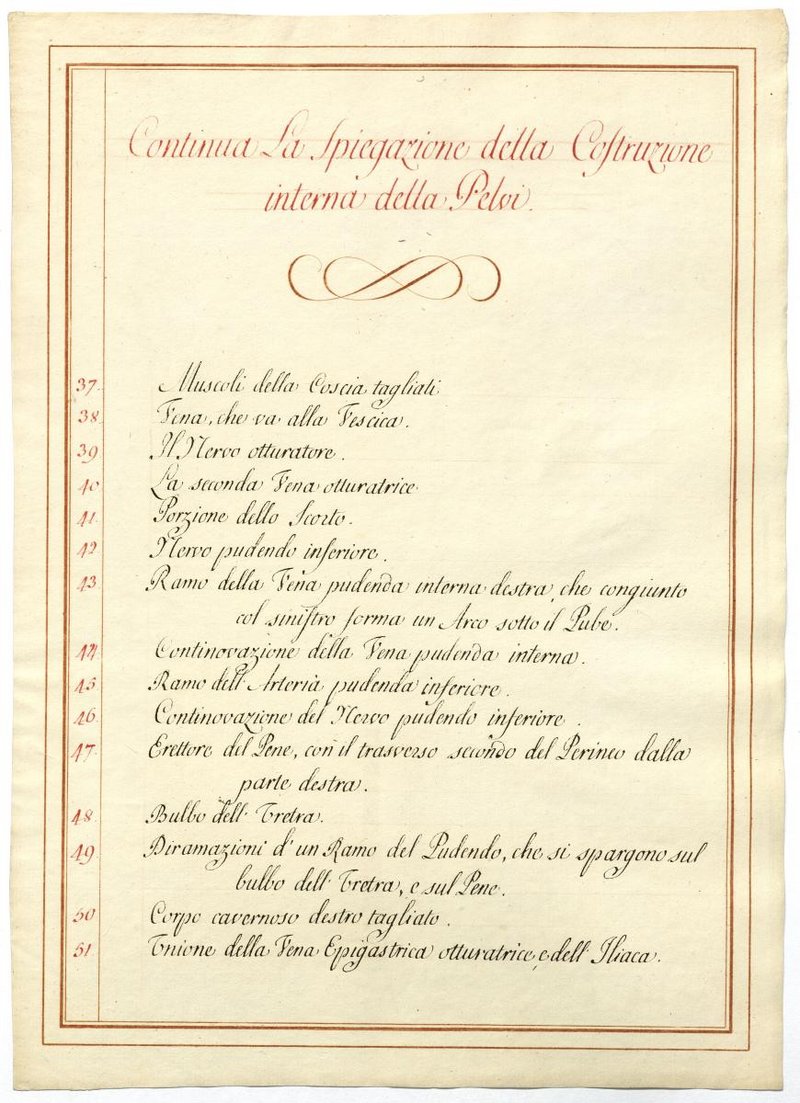 Continua La Spiegazione della Costruzione
interna della Pelvi.
37. Muscoli della Coscia tagliati
38. Vena, che va alla Vescica.
39 Il Nervo otturatore.
40 La seconda Vena otturatrice.
41. Porzione dello Scorto.
42 Nervo pudendo inferiore.
43. Ramo della Vena pudenda interna destra, che congiunto
col sinistro forma un Arco sotto il Pube.
44. Continovazione della Vena pudenda interna.
45. Ramo dell'Arteria pudenda inferiore.
46. Continovazione del Nervo pudendo inferiore.
47. Erettore del Pene, con il trasverso secondo del Perineo dalla
parte destra.
48. Bulbo dell'Uretra.
49. Diramazioni d'un Ramo del Pudendo, che si spargono sul
bulbo dell'Uretra, e sul Pene.
50 Corpo cavernoso destro tagliato.
51 Unione della Vena Epigastrica otturatrice, e dell'Iliaca.